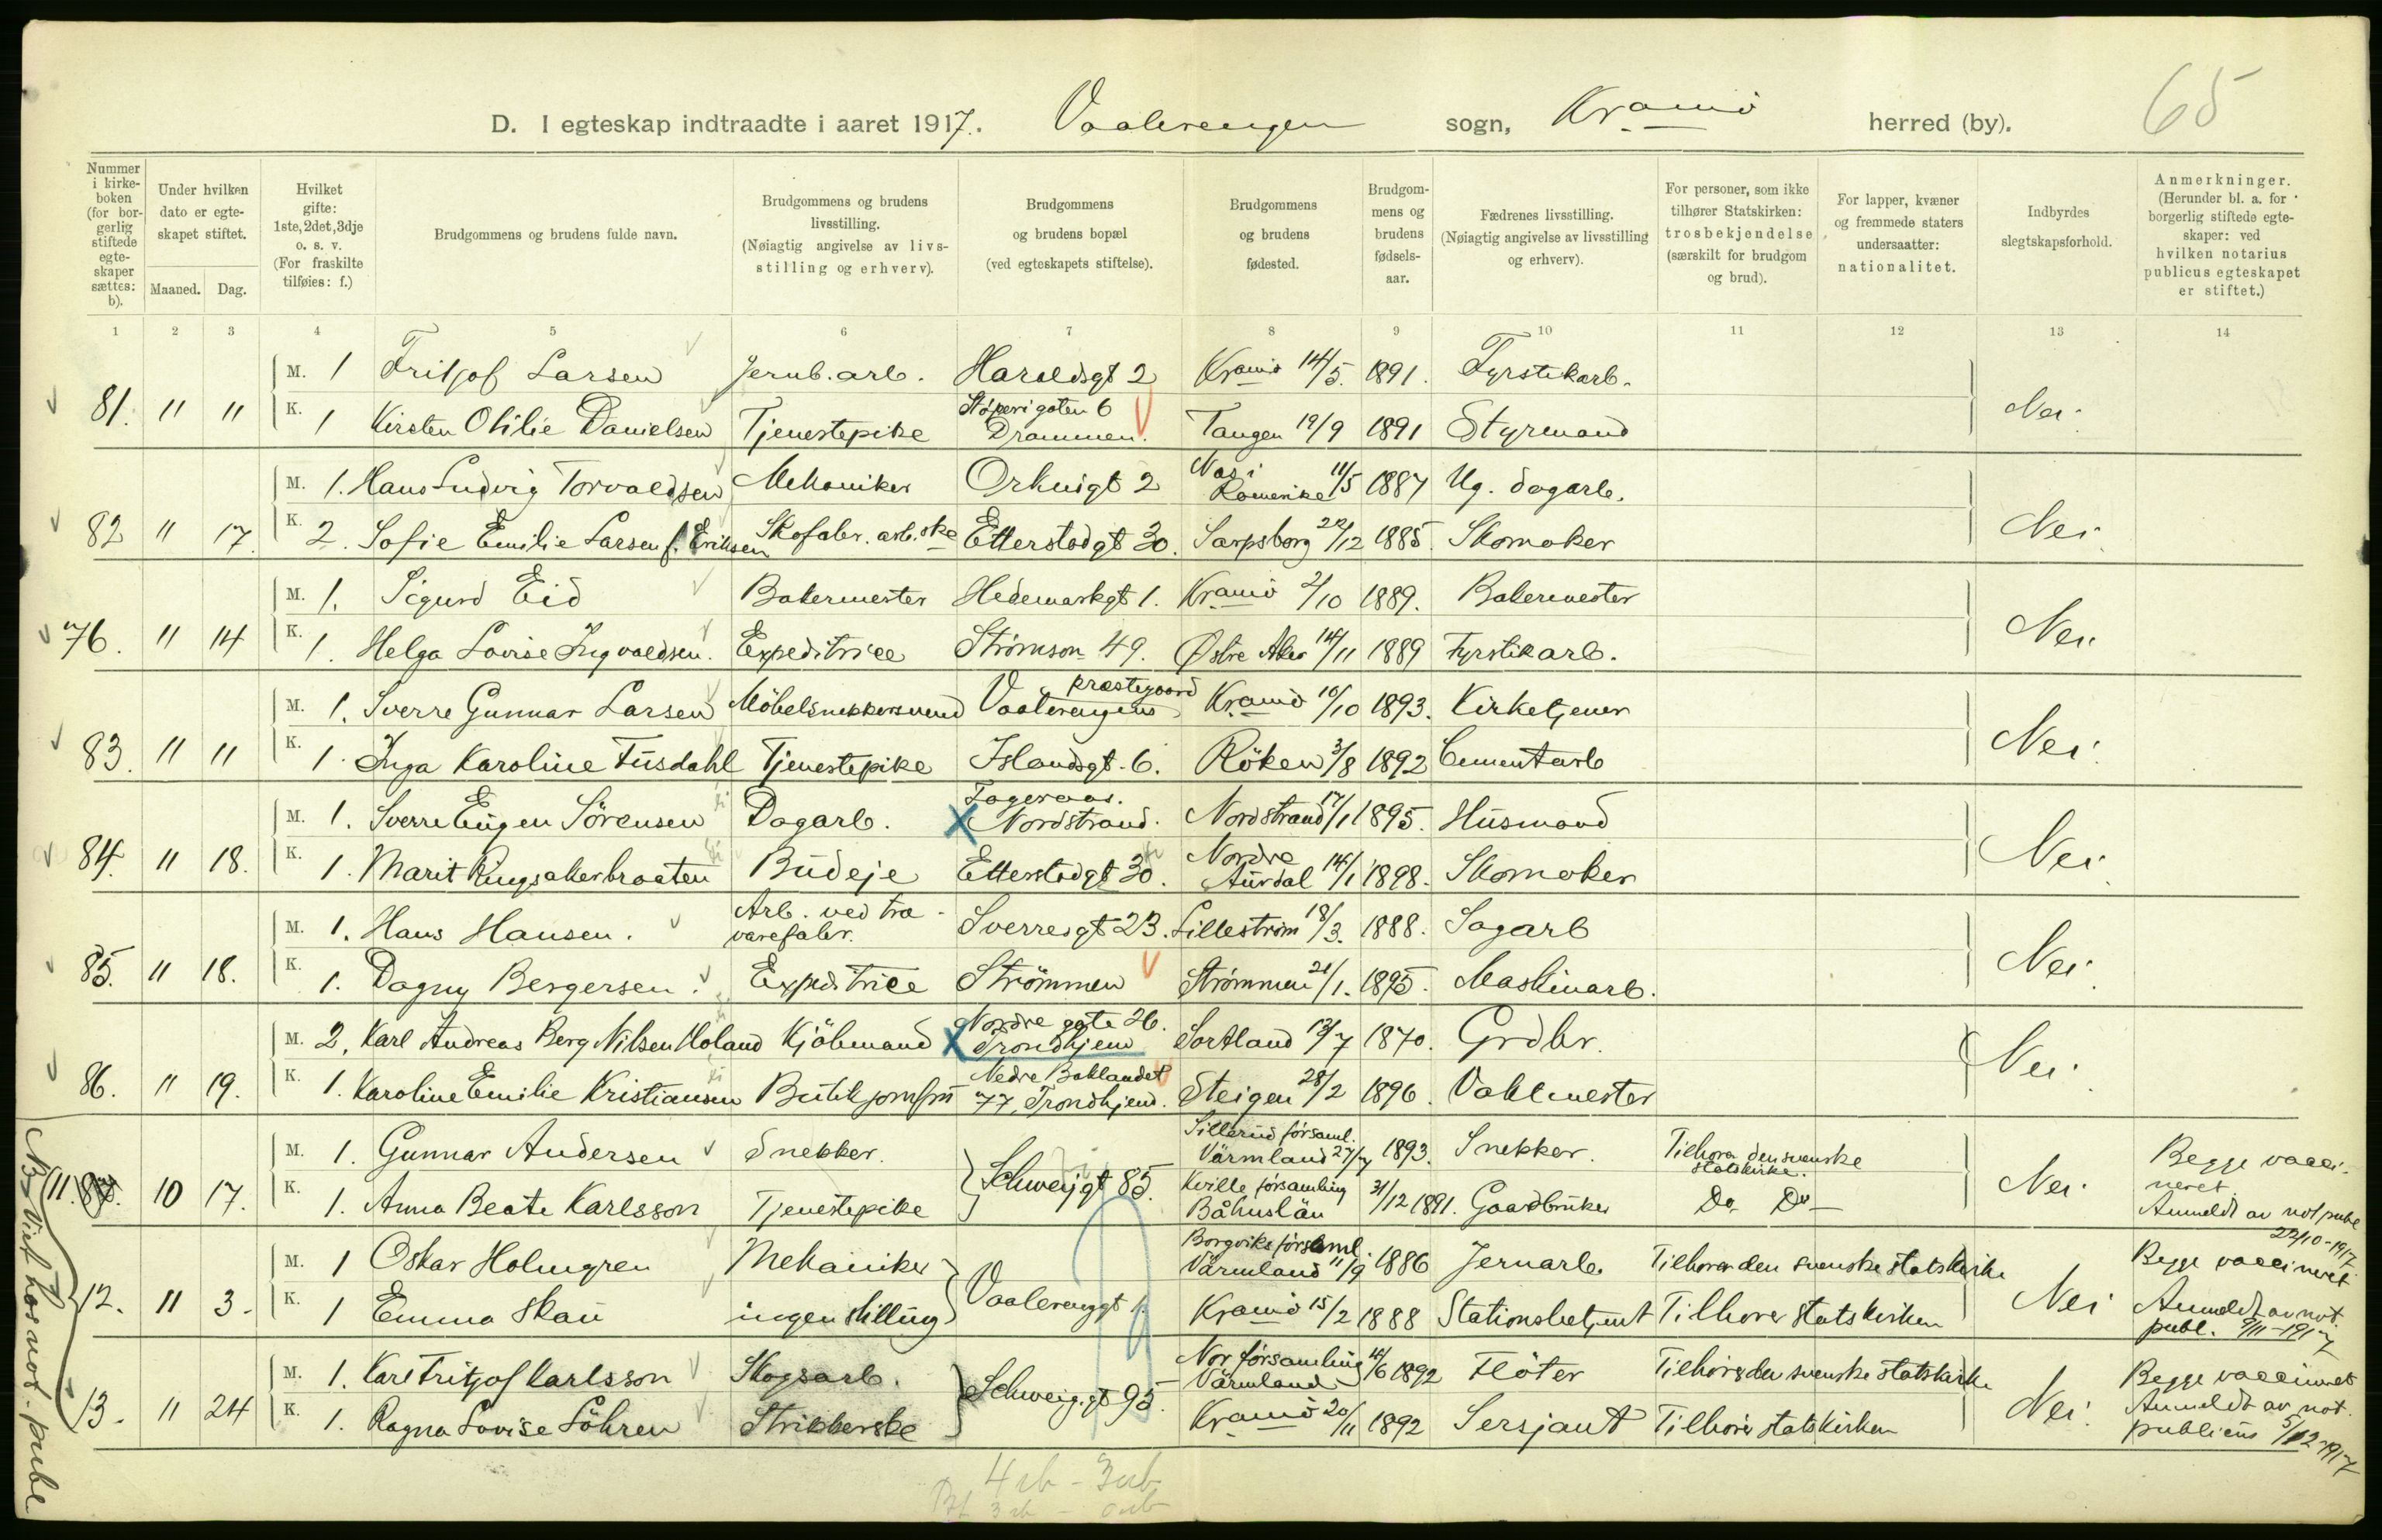 65
D. I egteskap indtraadte i aaret 1917. Vaalerengen sogn, Kr.ania herred (by).
Nummer i kirkeboken (for borgerlig stiftede egteskaper sættes: b).
Under hvilken dato er egteskapet stiftet.
Maaned. Dag.
Hvilket gifte: 1ste, 2det, 3dje o. s. v. (For fraskilte tilføies: f.)
Brudgommens og brudens fulde navn.
Brudgommens og brudens livsstilling. (Nøiagtig angivelse av livsstilling og erhverv).
Brudgommens og brudens bopæl (ved egteskapets stiftelse).
Brudgommens og brudens fødested.
Brudgommens og brudens fødselsaar.
Fædrenes livsstilling. (Nøiagtig angivelse av livsstilling og erhverv).
For personer, som ikke tilhører Statskirken: trosbekjendelse (særskilt for brudgom og brud).
For lapper, kvæner og fremmede staters undersaatter: nationalitet.
Indbyrdes slegtskapsforhold.
Anmerkninger. (Herunder bl. a. for borgerlig stiftede egteskaper: ved hvilken notarius publicus egteskapet er stiftet.)
1 2 3 4 5 6 7 8 9 10 11 12 13 14
M. 1 Fritjof Larsen Jernb.arb. Haraldsgt 2 Kr.ania 14/5. 1891. Fyrstikarb.
81. " " K. 1 Kirsten Otilie Danielsen Tjenestepike Støperigaten 6 Drammen. Tangen 19/9 1891 Styrmand Nei.
M. 1. Hans Ludvig Torvaldsen Mekaniker Orknigt 2 Nas i Romerike 11/5 1887 Ug. dagarb.
82 " 17. K. 2. Sofie Emilie Larsen f. Eriksen Skofabr. arb.ske Etterstadgt 30. Sarpsborg 22/12 1885. Skomaker Nei.
M. 1. Sigurd Eid Bakermester Hedemarkgt 1. Kr.ania 2/10 1889. Bakermester
76. " 14 K. 1. Helga Lovise Ingvaldsen. Expeditrice Strømsøn 49. Østre Aker 14/11 1889 Fyrstikarb. Nei.
M. 1. Sverre Gunnar Larsen Möbelsnekkersvend Vaalerengens prestegaard Kr.ania 10/10 1893. Kirketjener
83. " " K. 1. Inga Karoline Tusdahl Tjenestepike Islandsgt. 6. Röken 3/8 1892 Cementarb Nei.
M. 1. Sverre Eugen Sörensen Dagarb. Nordstrand. Nordstrand 17/1 1895. Husmand
84. " 18. K. 1. Marit Ringsakerbraaten Budeje Etterstadgt 30. Nordre Aurdal 14/1 1898. Skomaker Nei.
M. 1. Hans Hansen. Arb. ved travarefabr. Sverresgt 23. Lilleström 18/3. 1888. Sagarb
85. " 18. K. 1. Dagny Bergersen. Expeditrice Strömmen Strömmen 21/1. 1895. Maskinarb. Nei.
M. 2. Karl Andreas Berg Nilsen Holand Kjöbmand Nordre gate 26. Trondhjem Sortland 13/7 1870. Grdbr.
86. " 19. K. 1. Karoline Emilie Kristiansen Butikjomfru Nedre Baklandet 77, Trondhjem. Steigen 28/2 1896. Vaktmester Nei.
M. 1. Gunnar Andersen Snekker. Schweigt 85. Sillerud församl. Värmland 27/7 1893. Snekker. Tilhörer den svenske statskirke.
11. 10 17. K. 1. Anna Beate Karlsson Tjenestepike Kville församling Båhuslän 31/12 1891. Gaardbruker Do. Do. Nei. Begge vaccineret Anmeldt av not publ 22/10-1917
M. 1 Oskar Holmgren Mekaniker Vaalerenggt Borgviks församl. Värmland 11/9 1886 Jernarb. Tilhörer den svenske statskirke
12. 11 3. K. 1 Emma Skau ingen stilling Kr.ania 15/2 1888 Stationsbetjent Tilhører statskirken Nei Begge vaccineret. Anmeldt av not. publ. 9/11-1917
M. 1. Karl Fritjof Karlsson Skogsarb. Schweig.gt 95 Nor församling Värmland 14/6 1892 Flöter Tilhörer den svenske statskirke
13. 11 24 K. 1. Ragna Lovise Löhren Strikkerske Kr.ania 20/11 1892 Sersjant Tilhörer statskirken Nei. Begge vaccineret Anmeldt av not. publicus 5/12-1917
NB. Viet hos not. publ
4 ub - 3 ub
3 ub - 0 ub